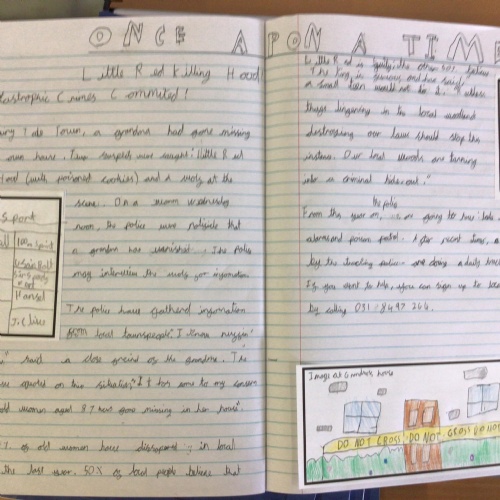 ONCE APON A TIME
Little Red Killing Hood!
Crimes Committed!
Tale Town, a grandma had gone missing
own house. Two suspects were caught: little Red
Hood (with poisoned cookies) and a wolf at the
scene. On a warm wednesday
noon, the police were notified that
a grandma has vanished. The police
may interview the wolf for information
The police have gathered information
from local townspeople. "I know nuffin"
said a close friend of the grandma. The
quoted on this situation, "It has come to my concern
old woman aged 87 has gone missing in her house".
% of old women have disappeared in local
the last year. 50% of local people believe that
sport
100m Sprint
Usain Bolt
Hansel
Little Red is guilty, the other 50% believe
The king is furious and has said,
a small town would not do it. "If these
thugs lingering in the local woodland
destroying our laws should stop this
instance. Our local woods are turning
into a criminal hide-out."
the police
From this year on, are going to have
alarms and person patrol. After recent times, a
by the local police are doing a daily
If you want to help, you can sign up
by calling 031-8497 266.
Image at Grandma's house
DO NOT CROSS DO NOT CROSS DO NOT